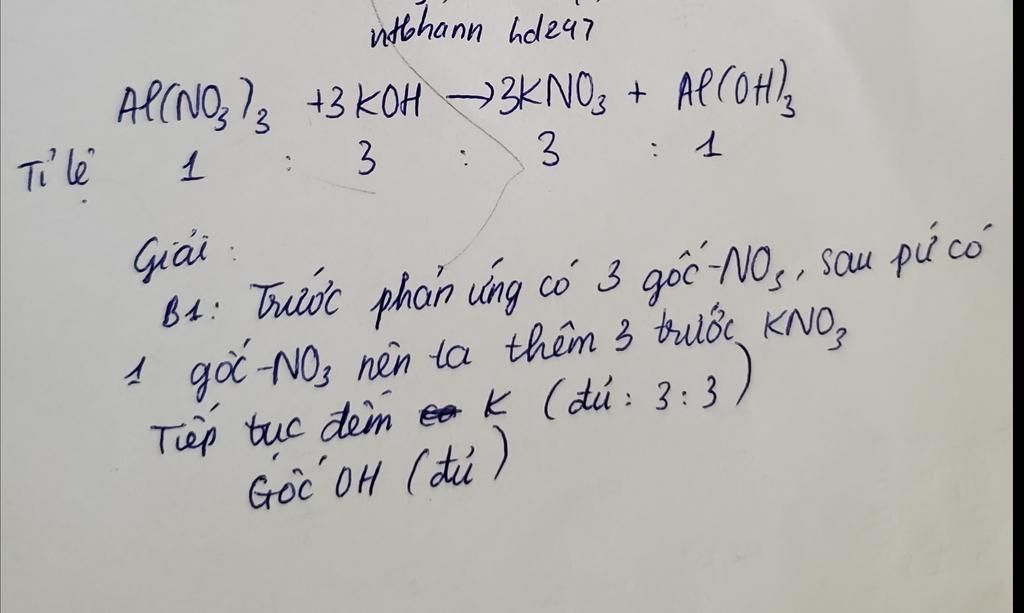 ntbhann hd247
Al(NO₃)₃ +3 KOH → 3KNO₃ + Al(OH)₃
Tỉ lệ 1 : 3 : 3 : 1
Giải :
B1: Trước phản ứng có 3 gốc -NO₃, sau pứ có
1 gốc -NO₃ nên ta thêm 3 trước KNO₃
Tiếp tục đếm K (đủ : 3 : 3)
Gốc OH (đủ)